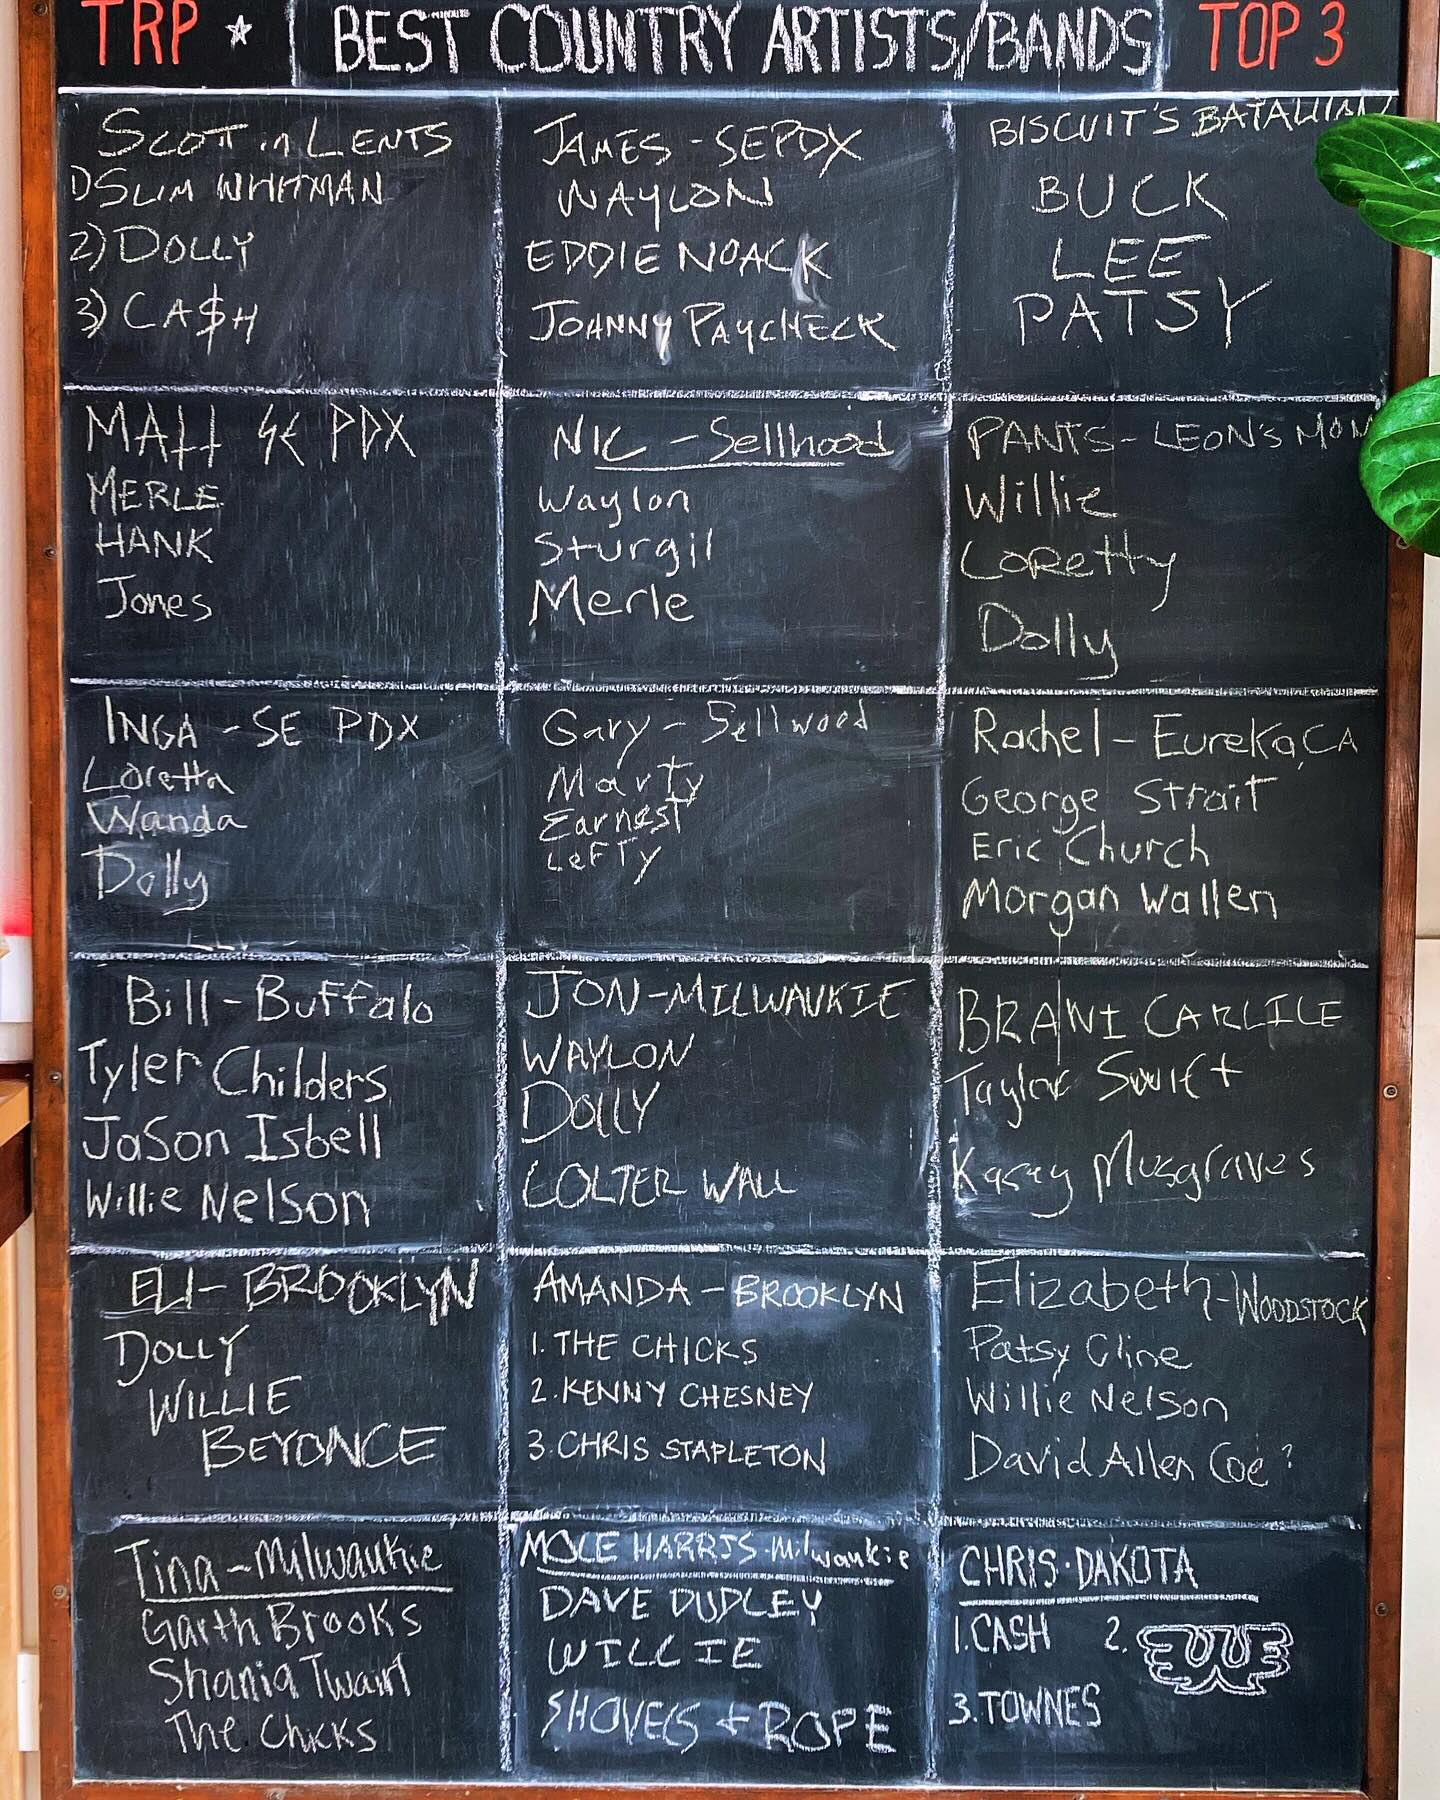 TRP ★ BEST COUNTRY ARTISTS/BANDS TOP 3
SCOTT in LENTS
1) SLIM WHITMAN
2) DOLLY
3) CA$H
JAMES - SEPDX
WAYLON
EDDIE NOACK
JOHNNY PAYCHECK
BISCUIT'S BATALLIAN
BUCK
LEE
PATSY
MATT SE PDX
MERLE
HANK
Jones
NIC - Sellhood
Waylon
Sturgil
Merle
PANTS - LEON'S MOM
Willie
Loretty
Dolly
INGA - SE PDX
Loretta
Wanda
Dolly
Gary - Sellwood
Marty
Earnest
LeFTy
Rachel - Eureka, CA
George Strait
Eric Church
Morgan Wallen
Bill - Buffalo
Tyler Childers
Jason Isbell
Willie Nelson
JON - MILWAUKIE
WAYLON
DOLLY
COLTER WALL
BRANI CARLILE
Taylor Swift
Kasey Musgraves
ELI - BROOKLYN
DOLLY
WILLIE
BEYONCE
AMANDA - BROOKLYN
1. THE CHICKS
2. KENNY CHESNEY
3. CHRIS STAPLETON
Elizabeth - WOODSTOCK
Patsy Cline
Willie Nelson
David Allen Coe?
Tina - Milwaukie
Garth Brooks
Shania Twain
The Chicks
MOLE HARRIS · Milwaukie
DAVE DUDLEY
WILLIE
SHOVELS + ROPE
CHRIS · DAKOTA
1. CASH 2.
3. TOWNES